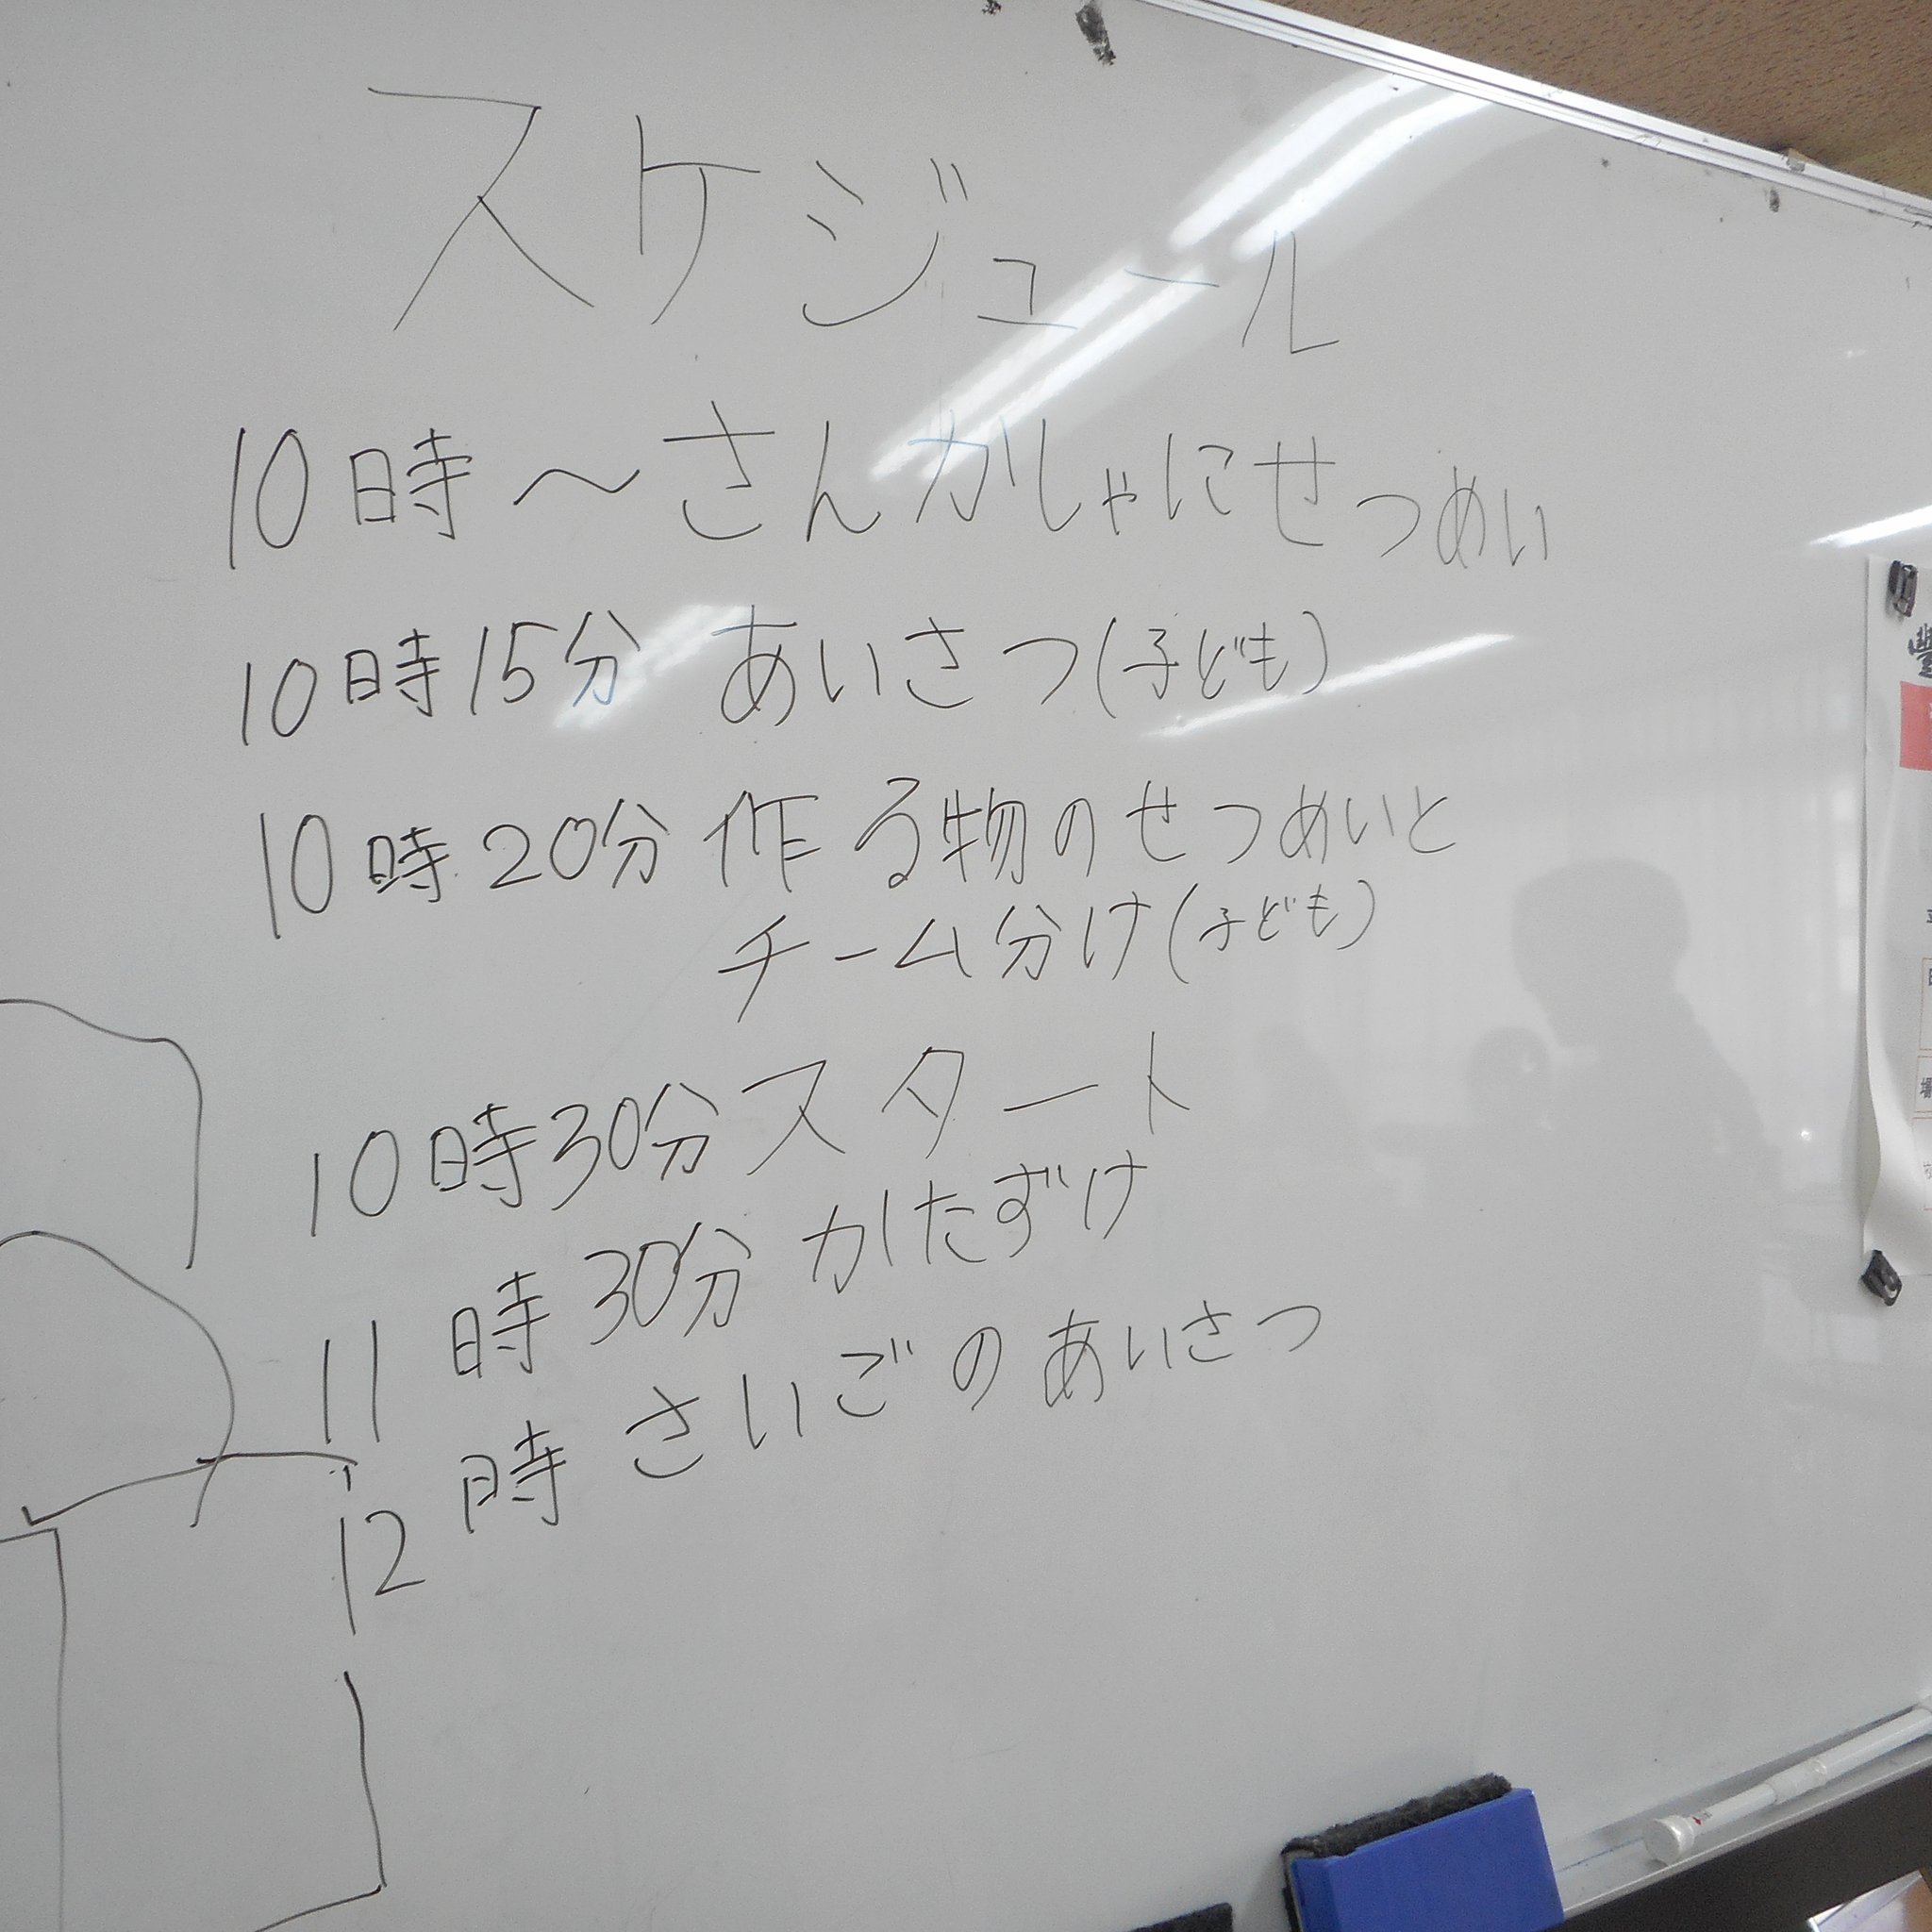 スケジュール
10時〜さんかしゃにせつめい
10時15分 あいさつ(子ども)
10時20分 作る物のせつめいと
チーム分け(子ども)
10時30分スタート
11時30分かたずけ
12時さいごのあいさつ